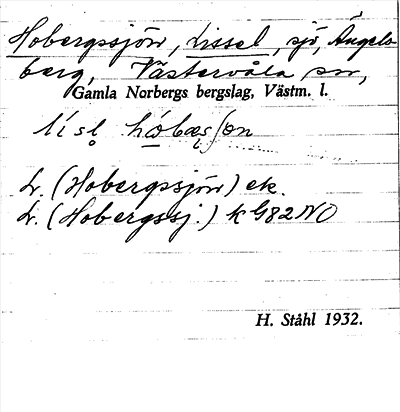 Hobergssjön, Lissel, sjö, Ängels-
berg, Västervåla sn,
Gamla Norbergs bergslag, Västm. l.
L. (Hobergssjön) ek.
L. (Hobergssj.) k G82NO
H. Ståhl 1932.